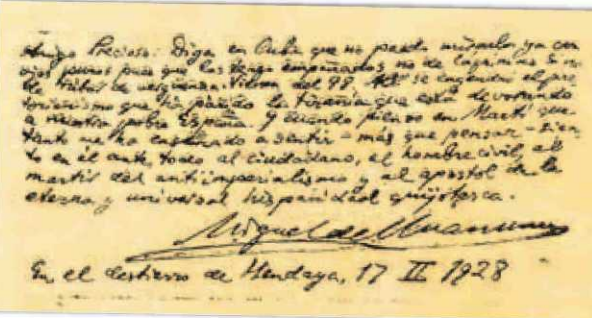 Amigo Precioso: Diga en Cuba que no puedo mirarla ya con
ojos puros pues que los tengo empañados no de lágrimas si no
de de vergüenza. Vienen del 98. Allí se engendró el pre
torianismo que ha parido la tiranía que está devorando
a nuestra pobre España. Y cuando pienso en Martí que
tanto me ha enseñado a sentir – más que pensar – sien
to en él ante todo al ciudadano, el hombre civil, al
martir del antiimperialismo y al apostol de la
eterna y universal hispanidad quijotesca.
Miguel de Unamuno
En el destierro de Hendaya, 17 II 1928